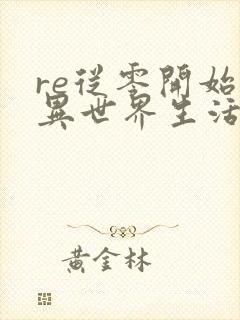 re從零開始
異世界生活
黃金林